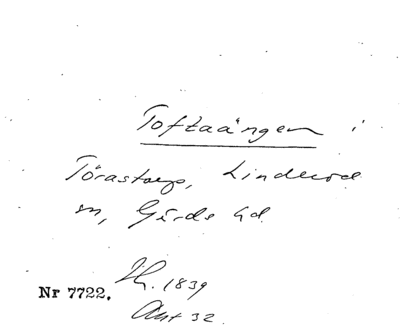 Toftaängen i
Törastorp, Linderöd
sn, Gärds hd
H. 1839
Nr 7722.
Akt 32